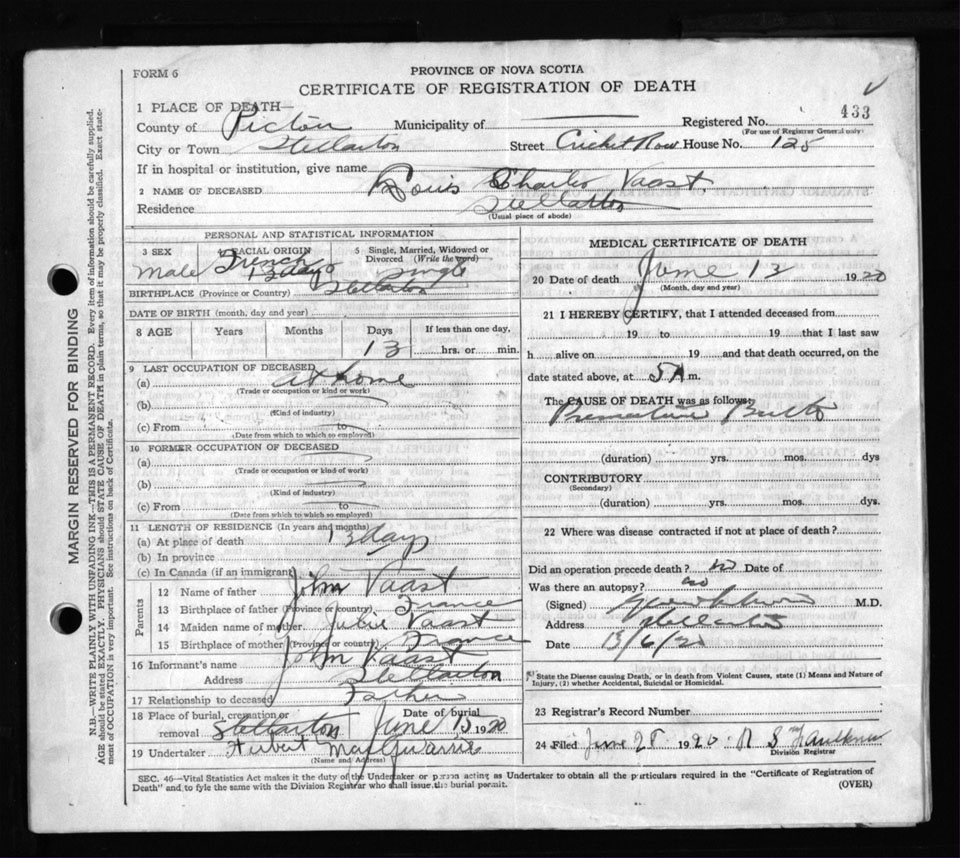 FORM 6
PROVINCE OF NOVA SCOTIA
CERTIFICATE OF REGISTRATION OF DEATH
1 PLACE OF DEATH—
Registered No. 433
(For use of Registrar General only)
County of Pictou Municipality of —
City or Town Stellarton Street Cricket Row House No. 125
If in hospital or institution, give name
2 NAME OF DECEASED Louis Charles Vaast.
Residence Stellarton
(Usual place of abode)
PERSONAL AND STATISTICAL INFORMATION
3 SEX 4 RACIAL ORIGIN 5 Single, Married, Widowed or Divorced (Write the word)
Male French 13 days Single
BIRTHPLACE (Province or Country) Stellarton
DATE OF BIRTH (month, day and year)
8 AGE Years Months Days If less than one day,
13 hrs. or min.
9 LAST OCCUPATION OF DECEASED
(a) at home
(Trade or occupation or kind or work)
(b)
(Kind of industry)
(c) From
(Date from which to which so employed)
10 FORMER OCCUPATION OF DECEASED
(a)
(Trade or occupation or kind of work)
(b)
(Kind of industry)
(c) From
(Date from which to which so employed)
11 LENGTH OF RESIDENCE (In years and months)
(a) At place of death 13 days
(b) In province
(c) In Canada (if an immigrant)
Parents
12 Name of father John Vaast
13 Birthplace of father (Province or country) France
14 Maiden name of mother Julie Vaast
15 Birthplace of mother (Province or country) France
16 Informant's name John Vaast
Address Stellarton
17 Relationship to deceased Father
18 Place of burial, cremation or removal Stellarton Date of burial June 13 1920
19 Undertaker Herbert
(Name and Address)
MEDICAL CERTIFICATE OF DEATH
20 Date of death June 13 1920
(Month, day and year)
21 I HEREBY CERTIFY, that I attended deceased from
19 to 19 that I last saw
h alive on 19 and that death occurred, on the
date stated above, at 5 A m.
The CAUSE OF DEATH was as follows:
Premature Birth
(duration) yrs. mos. dys
CONTRIBUTORY
(Secondary)
(duration) yrs. mos. dys.
22 Where was disease contracted if not at place of death?
Did an operation precede death? no Date of
Was there an autopsy? no
(Signed) M.D.
Address Stellarton
Date 13/6/20
State the Disease causing Death, or in death from Violent Causes, state (1) Means and Nature of
Injury, (2) whether Accidental, Suicidal or Homicidal.
23 Registrar's Record Number
24 Filed June 28 1920 R S Faulkner
Division Registrar
SEC. 46—Vital Statistics Act makes it the duty of the Undertaker or person acting as Undertaker to obtain all the particulars required in the "Certificate of Registration of
Death" and to fyle the same with the Division Registrar who shall issue the burial permit.
(OVER)
MARGIN RESERVED FOR BINDING
N.B.—WRITE PLAINLY WITH UNFADING INK—THIS IS A PERMANENT RECORD. Every item of information should be carefully supplied.
AGE should be stated EXACTLY. PHYSICIANS should STATE CAUSE OF DEATH in plain terms, so that it may be properly classified. Exact state-
ment of OCCUPATION is very important. See instructions on back of Certificate.